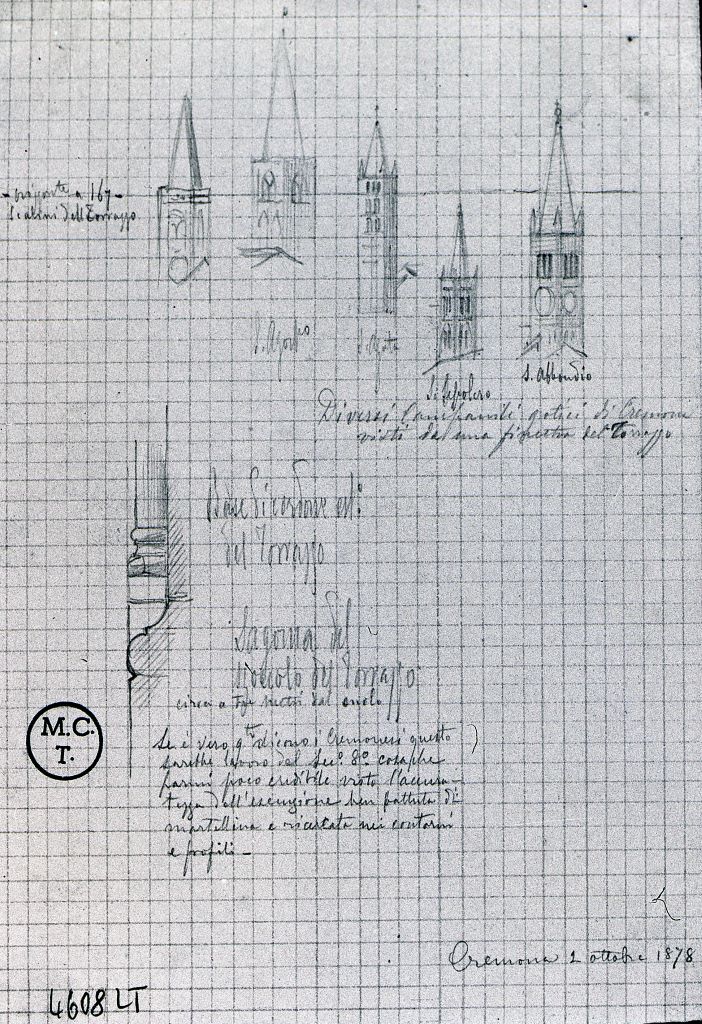 a 167 -
Scalini dell Torrazzo
S. Agost.o
S. Agata
S. Sepolcro
S. Abbondio
Diversi Campanili gotici di Cremona
visti da una finestra del Torrazzo
Base di
del Torrazzo
Sagoma del
zoccolo del Torrazzo
circa a tre metri dal suolo
Se è vero q.to dicono i Cremonesi questo
sarebbe lavoro del Sec.o 8.o cosa che
parmi poco credibile vista l'accura-
tezza dell'esecuzione ben battuta di
martellina e ricercata nei contorni
e profili -
M.C.
T.
Cremona 2 ottobre 1878
4608 LT